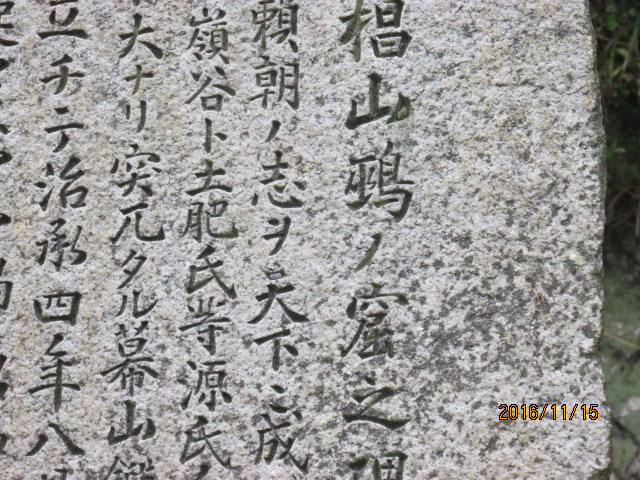 椙山鵐ノ窟之碑
頼朝ノ志ヲ天下ニ成
嶺谷ト土肥氏等源氏
大ナリ突兀タル幕山
立チテ治承四年八
2016/11/15